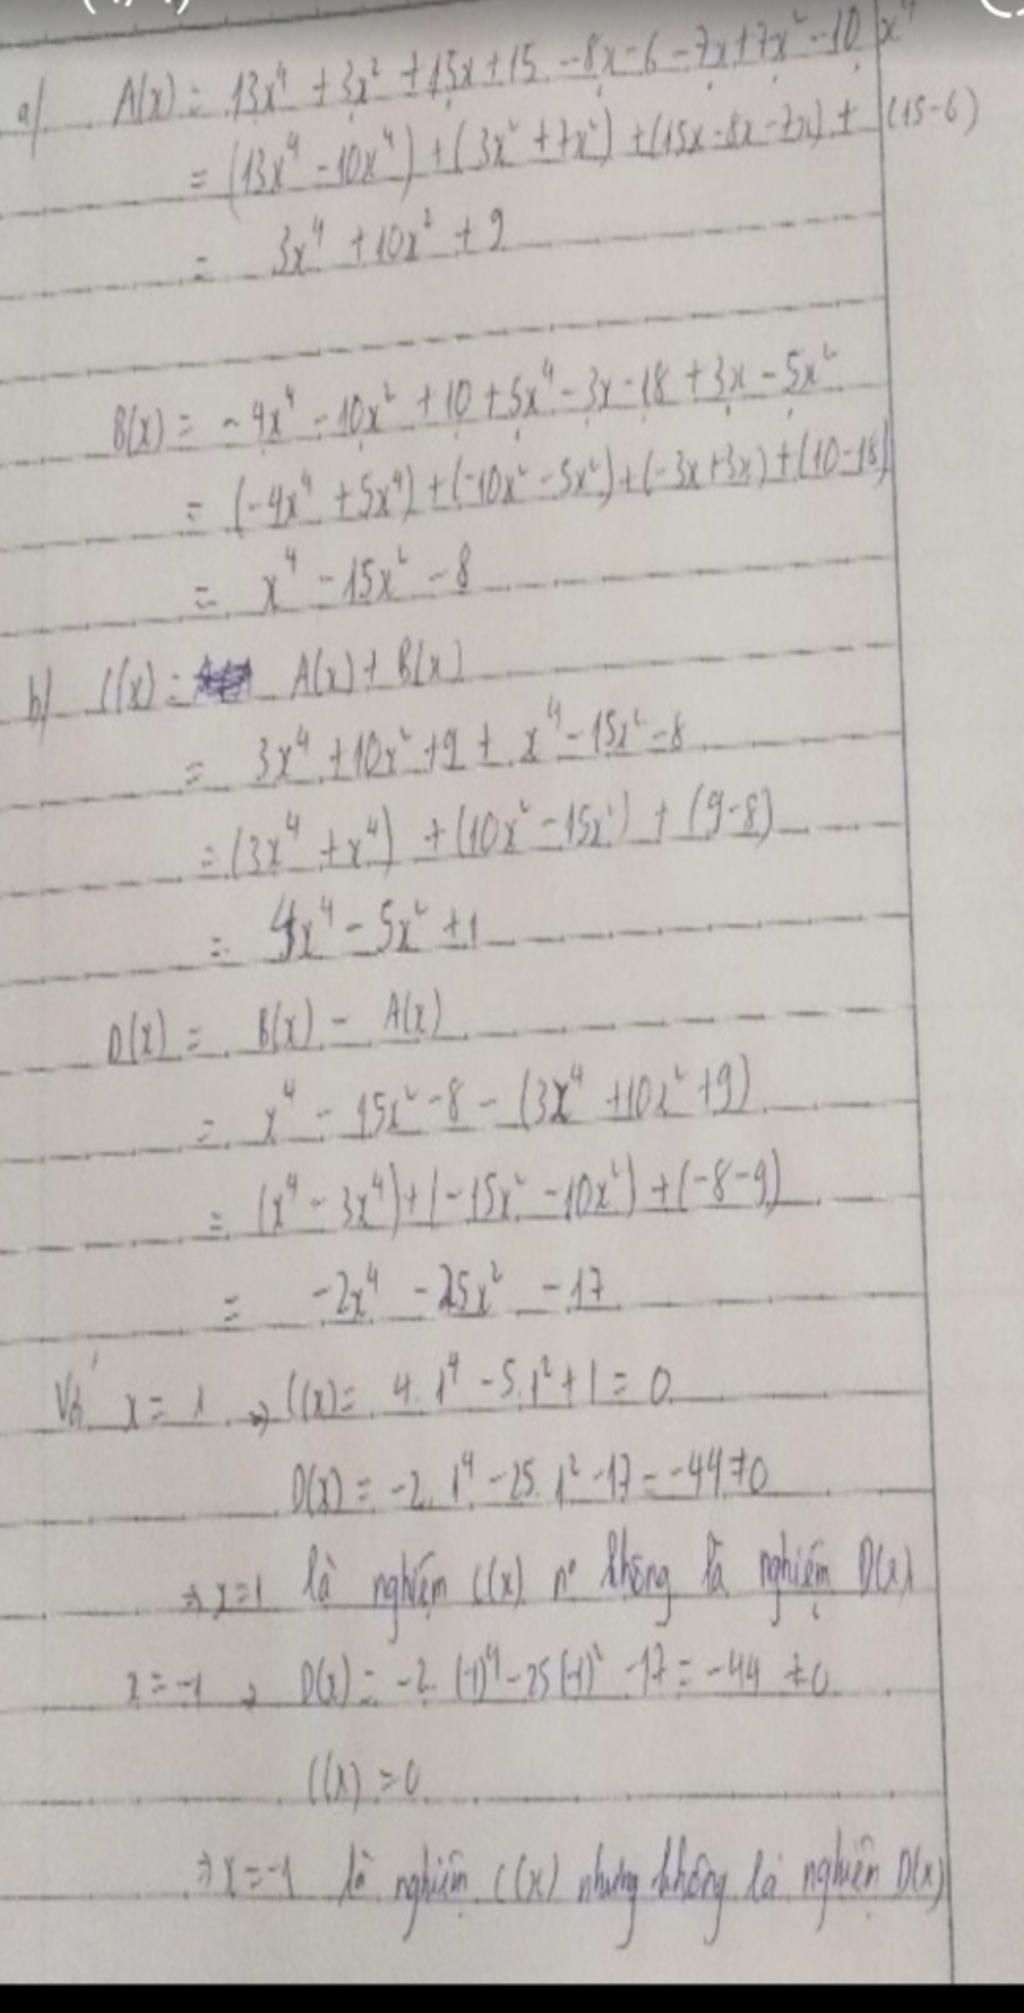 a/ A(x) = 13x⁴ + 3x² + 15x + 15 - 8x - 6 - 7x + 7x² - 10x⁴
= (13x⁴ - 10x⁴) + (3x² + 7x²) + (15x - 8x - 7x) + (15 - 6)
= 3x⁴ + 10x² + 9
B(x) = - 4x⁴ - 10x² + 10 + 5x⁴ - 3x - 18 + 3x - 5x²
= (-4x⁴ + 5x⁴) + (-10x² - 5x²) + (-3x + 3x) + (10 - 18)
= x⁴ - 15x² - 8
b) C(x) = A(x) + B(x)
= 3x⁴ + 10x² + 9 + x⁴ - 15x² - 8
= (3x⁴ + x⁴) + (10x² - 15x²) + (9 - 8)
= 4x⁴ - 5x² + 1
D(x) = B(x) - A(x)
= x⁴ - 15x² - 8 - (3x⁴ + 10x² + 9)
= (x⁴ - 3x⁴) + (-15x² - 10x²) + (-8 - 9)
= -2x⁴ - 25x² - 17
Với x = 1 => C(x) = 4. 1⁴ - 5. 1² + 1 = 0
D(x) = -2. 1⁴ - 25. 1² - 17 = -44 ≠ 0
=> x = 1 là nghiệm C(x) n° không là nghiệm D(x)
x = -1 => D(x) = -2. (-1)⁴ - 25(-1)² - 17 = -44 ≠ 0
C(x) = 0
=> x = -1 là nghiệm C(x) nhưng không là nghiệm D(x)